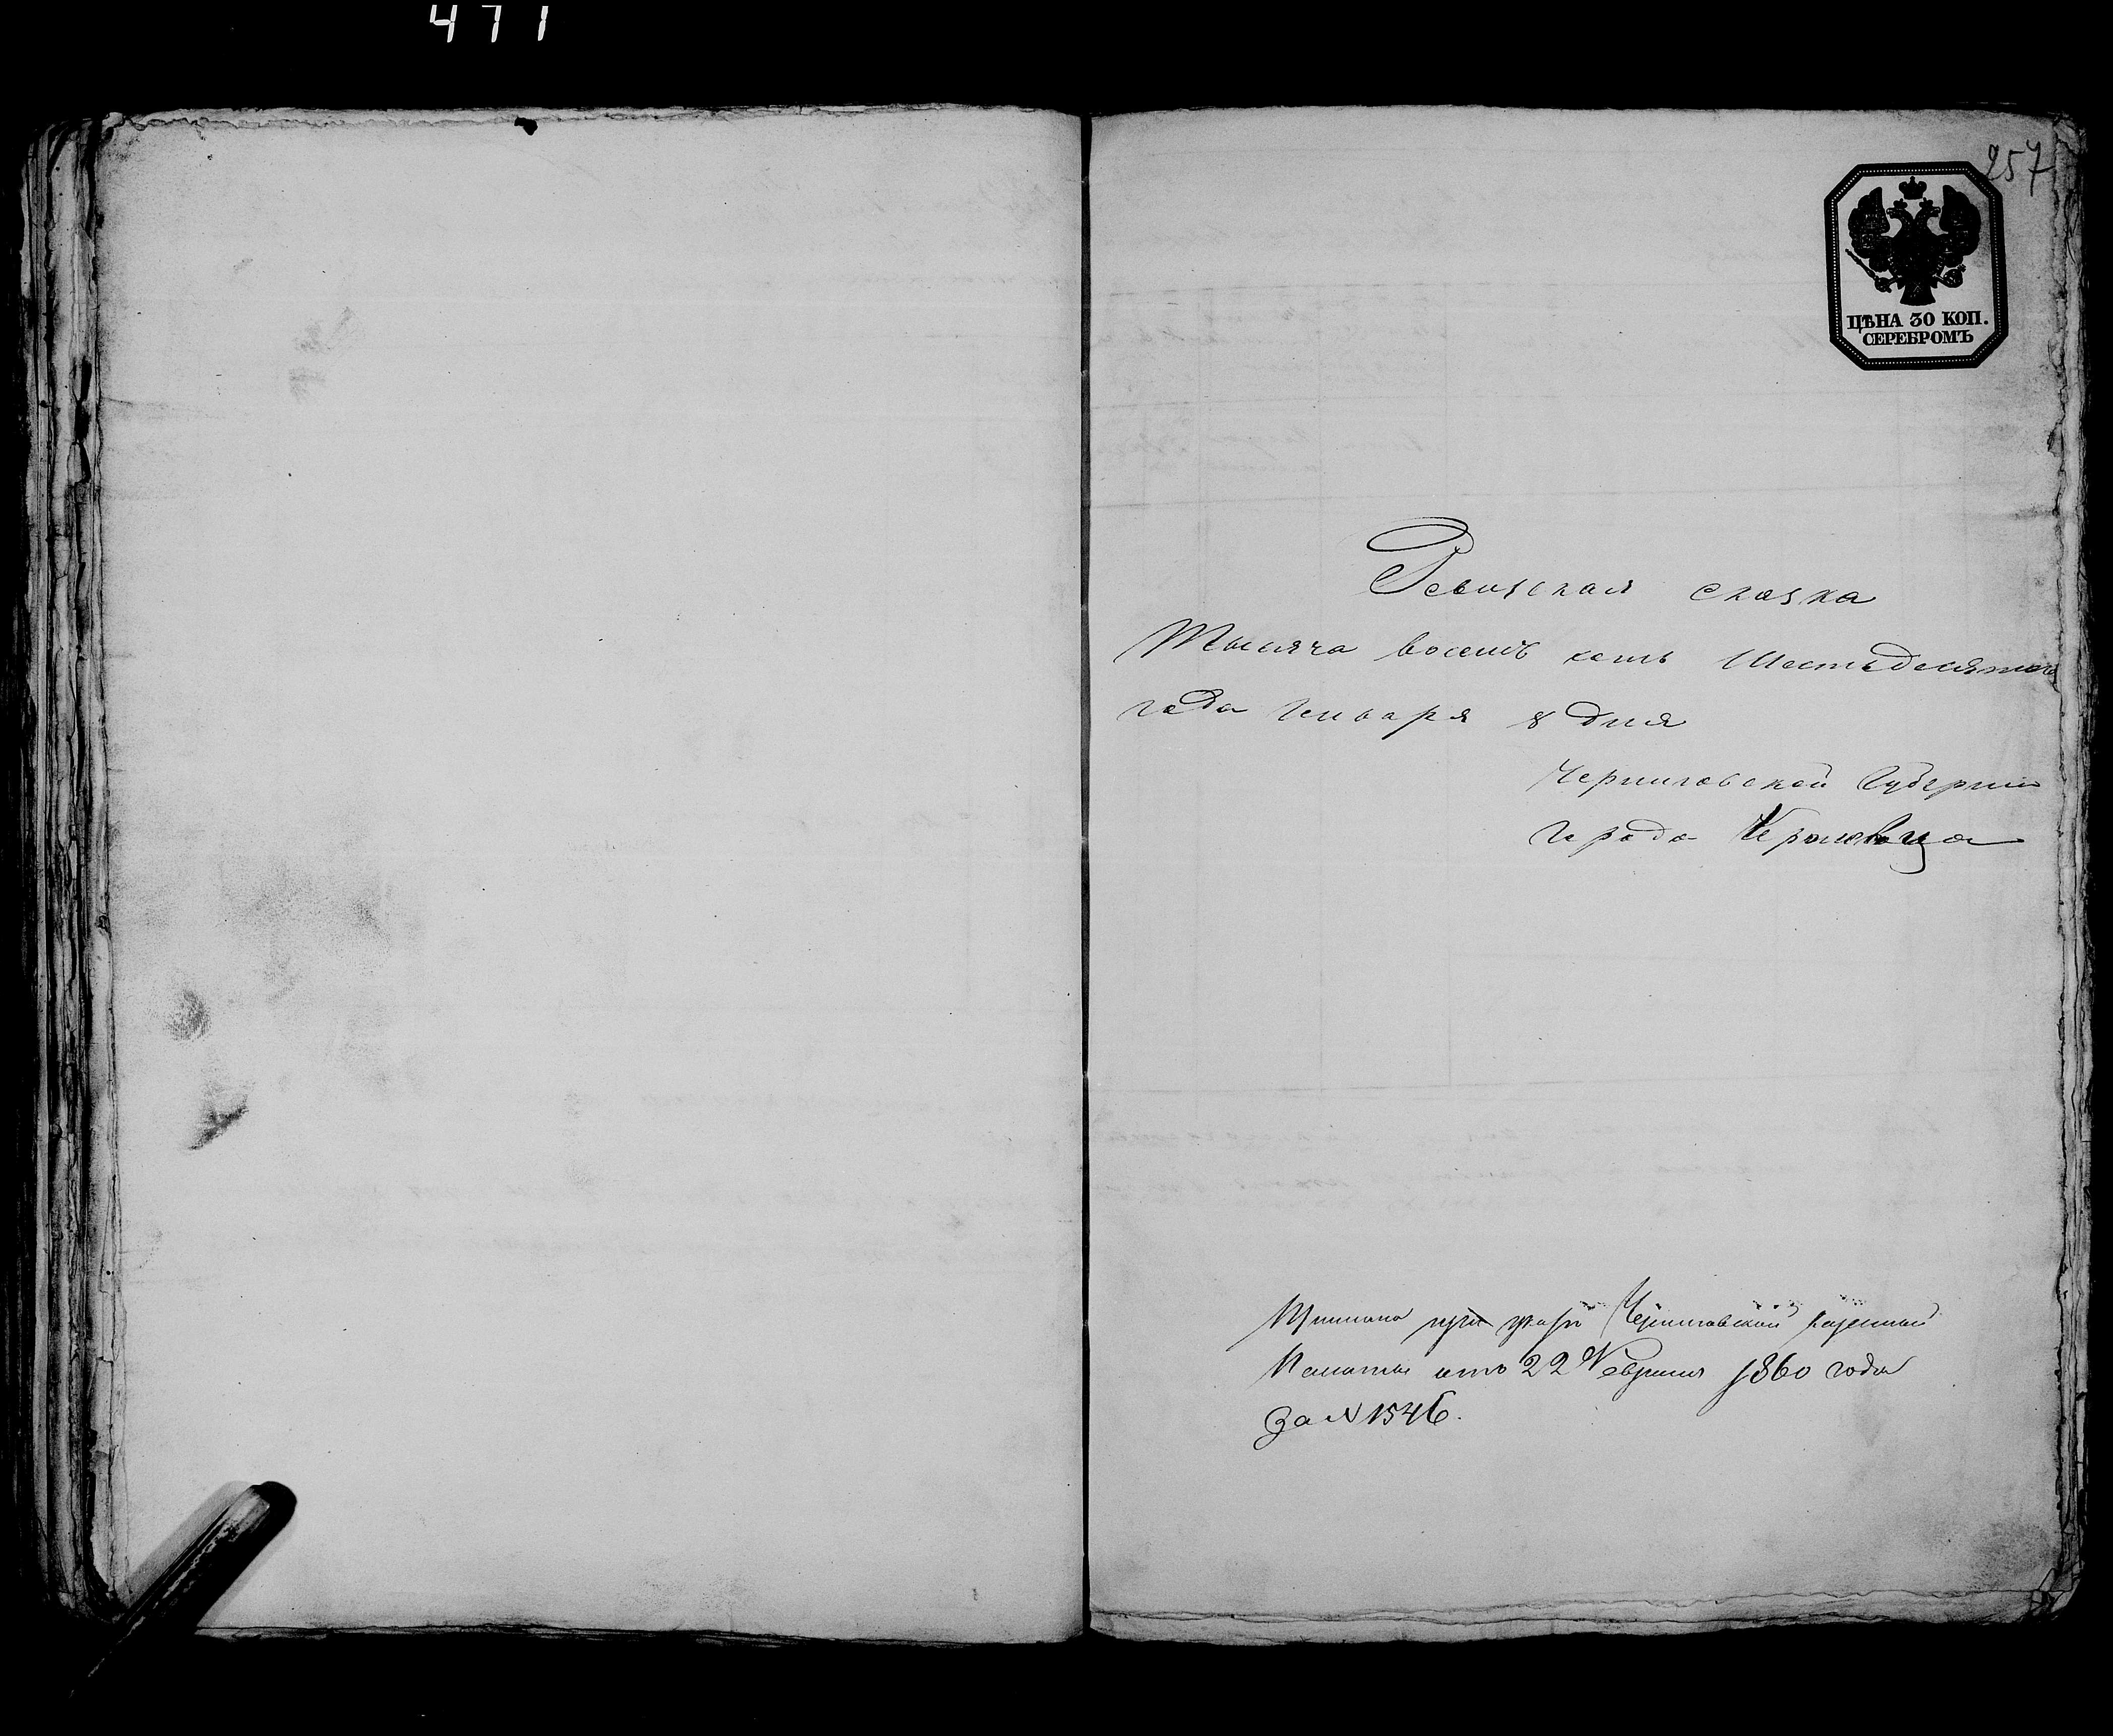 471
257
ЦѢНА 30 КОП.
СЕРЕБРОМЪ
Ревизская сказка
Тысяча восемъ сотъ Шестьдесятого
года Генваря 8 дня
Черниговской Губернии
города Кролевца
при указѣ Черниговской казенной
Палаты отъ 22 Февраля 1860 года
За N 1546.